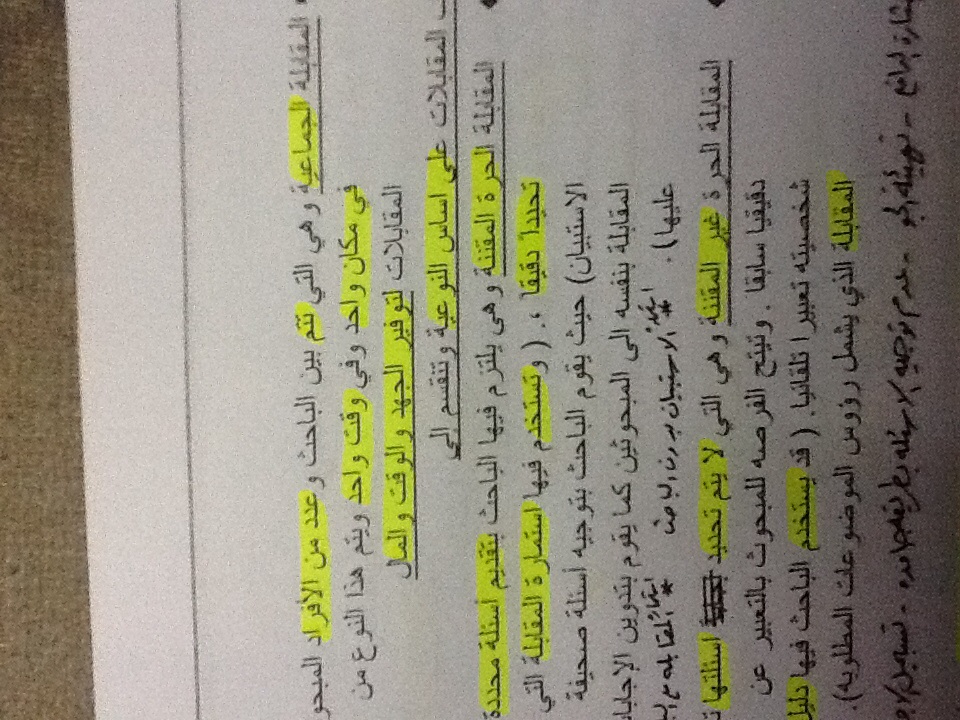 المقابلة الجماعية وهي التي تتم بين الباحث وعدد من الأفراد المبحو
في مكان واحد وفي وقت واحد ويتم هذا النوع من
المقابلات لتوفير الجهد والوقت والمال
المقابلات على اساس النوعية وتنقسم الى
المقابلة الحرة المقننة وهي يلتزم فيها الباحث بتقديم أسئلة محددة
تحديدا دقيقا ،. ( وتستخدم فيها استمارة المقابلة التي
الاستبيان) حيث يقوم الباحث بتوجيه اسئلة صحيفة
المقابلة بنفسه الى المبحوثين كما يقوم بتدوين الإجابا
عليها) .
* الاستبيان بدون الباحث
* المقابله
المقابلة الحرة غير المقننة وهي التي لا يتم تحديد اسئلتها
دقيقيا سابقا . وتيتح الفرصه للمبحوث بالتعبير عن
شخصيته تعبيرا تلقانيا. ( قد يستخدم الباحث فيها دليل
المقابله الذي يشمل رؤوس الموضوعات المطلوبه).
- عدم توجيه الاسئله بطريقه جامده -